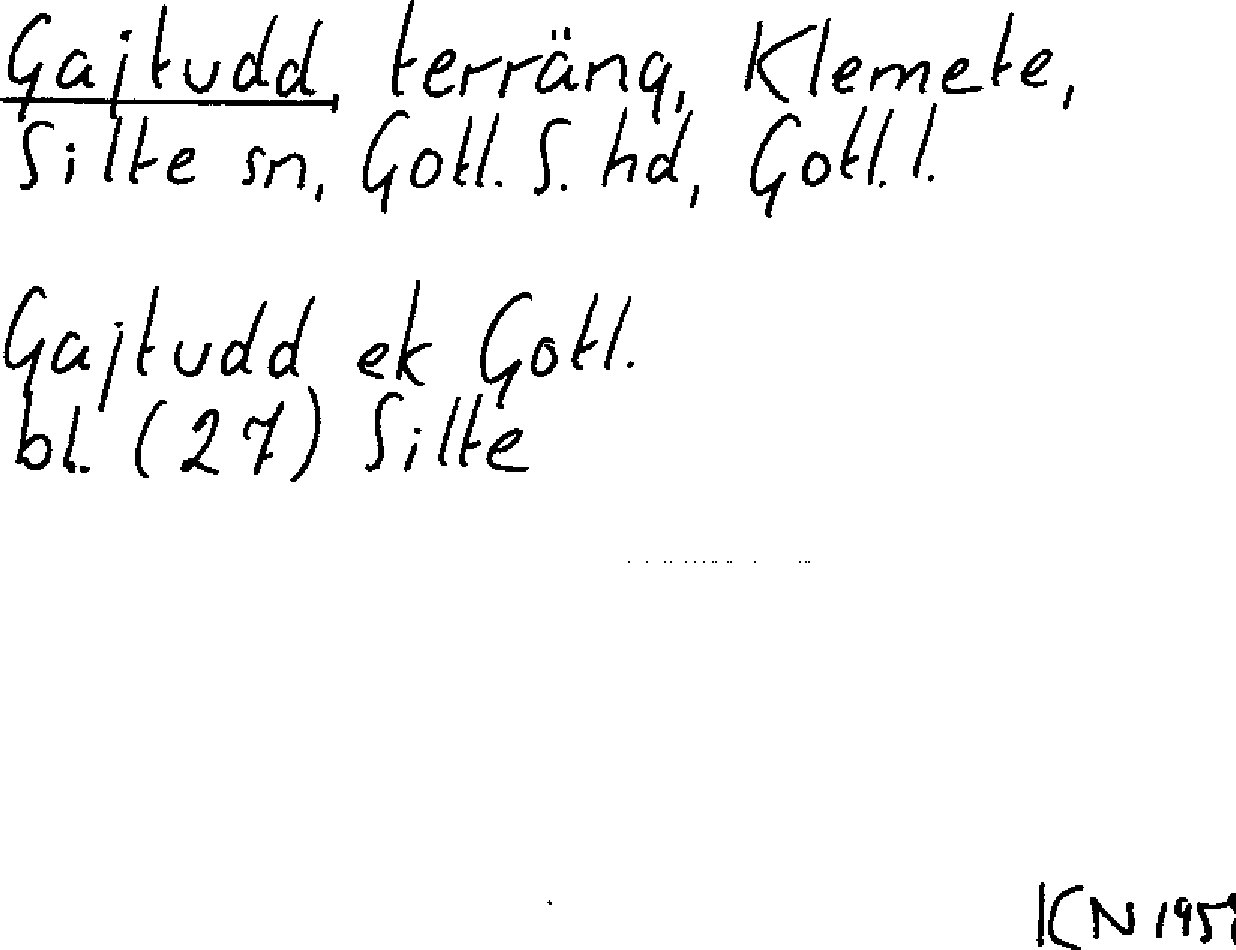 Gajtudd, terräng, Klemete,
Silte sn, Gotl. S. hd, Gotl. l.
Gajtudd ek Gotl.
bl. (27) Silte
KN 1951